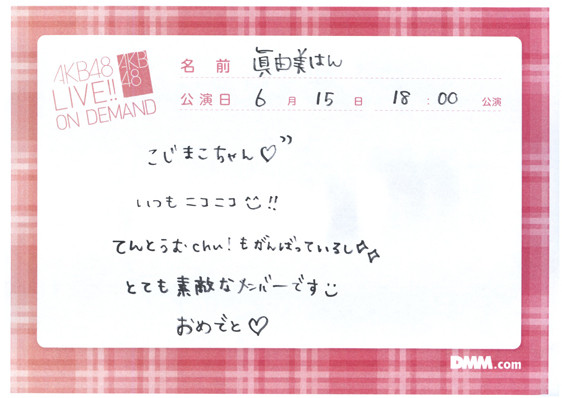 AKB48
LIVE!!
ON DEMAND
AKB
48
名 前 眞由美はん
公演日 6 月 15 日 18 : 00 公演
こじまこちゃん♡"
いつもニコニコ!!
てんとうむchu!もがんばっているし
とても素敵なメンバーです
おめでと♡
DMM.com